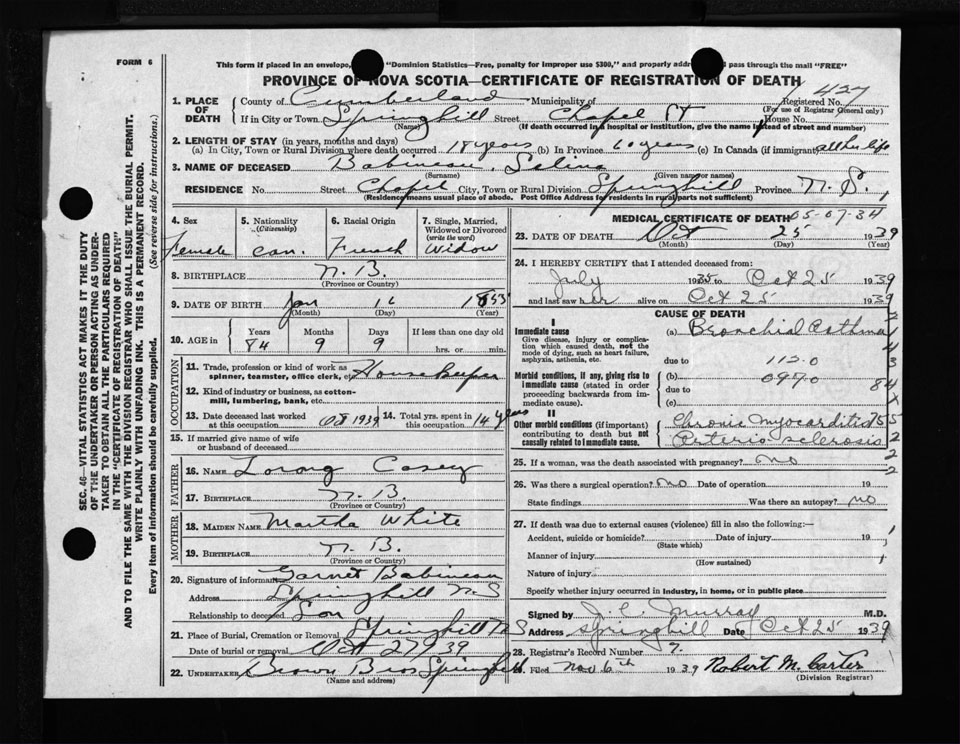 FORM 6
This form if placed in an envelope, "Dominion Statistics—Free, penalty for improper use $300," and properly addressed pass through the mail "FREE"
PROVINCE OF NOVA SCOTIA—CERTIFICATE OF REGISTRATION OF DEATH
SEC. 46—VITAL STATISTICS ACT MAKES IT THE DUTY
OF THE UNDERTAKER OR PERSON ACTING AS UNDER-
TAKER TO OBTAIN ALL THE PARTICULARS REQUIRED
IN THE "CERTIFICATE OF REGISTRATION OF DEATH"
AND TO FILE THE SAME WITH THE DIVISION REGISTRAR WHO SHALL ISSUE THE BURIAL PERMIT.
WRITE PLAINLY WITH UNFADING INK. THIS IS A PERMANENT RECORD.
Every item of Information should be carefully supplied. (See reverse side for instructions.)
1. PLACE OF DEATH County of Cumberland Municipality of Registered No. 427
(For use of Registrar General only)
If in City or Town Springhill Street Chapel St House No.
(Name) (If death occurred in a hospital or institution, give the name instead of street and number)
2. LENGTH OF STAY (in years, months and days)
(a) In City, Town or Rural Division where death occurred 18 years (b) In Province 60 years (c) In Canada (if immigrant) all her life
3. NAME OF DECEASED Babineau, Selina
(Surname) (Given name or names)
RESIDENCE No. Street Chapel City, Town or Rural Division Springhill Province N.S.
(Residence means usual place of abode. Post Office Address for residents in rural parts not sufficient)
4. Sex Female
5. Nationality (Citizenship) Can.
6. Racial Origin French
7. Single, Married, Widowed or Divorced (write the word) Widow
8. BIRTHPLACE N.B.
(Province or Country)
9. DATE OF BIRTH Jan 16 1855
(Month) (Day) (Year)
10. AGE in Years Months Days If less than one day old
84 9 9 hrs. or min.
OCCUPATION
11. Trade, profession or kind of work as spinner, teamster, office clerk, etc. Housekeeper
12. Kind of industry or business, as cotton-mill, lumbering, bank, etc.
13. Date deceased last worked at this occupation Oct 8 1939 14. Total yrs. spent in this occupation 14 years
15. If married give name of wife or husband of deceased
FATHER
16. NAME Casey
17. BIRTHPLACE N.B.
(Province or Country)
MOTHER
18. MAIDEN NAME Martha White
19. BIRTHPLACE N.B.
(Province or Country)
20. Signature of informant Garnet Babineau
Address Springhill N.S
Relationship to deceased Son
21. Place of Burial, Cremation or Removal Springhill N S
Date of burial or removal Oct 27 1939
22. UNDERTAKER Brown Bros Springhill
(Name and address)
MEDICAL CERTIFICATE OF DEATH 05-07-34
23. DATE OF DEATH Oct 25 1939
(Month) (Day) (Year)
24. I HEREBY CERTIFY that I attended deceased from:
July 1935 to Oct 25 1939
and last saw her alive on Oct 25 1939
CAUSE OF DEATH
I
Immediate cause (a) Bronchial Asthma
Give disease, injury or complication which caused death, not the mode of dying, such as heart failure, asphyxia, asthenia, etc.
due to 112.0
Morbid conditions, if any, giving rise to immediate cause (stated in order proceeding backwards from immediate cause).
(b) 097.0
due to
(c)
II
Other morbid conditions (if important) contributing to death but not causally related to immediate cause.
Chronic Myocarditis
Arterio sclerosis
25. If a woman, was the death associated with pregnancy? no
26. Was there a surgical operation? no Date of operation 19
State findings Was there an autopsy? no
27. If death was due to external causes (violence) fill in also the following:—
Accident, suicide or homicide? Date of injury 19
(State which)
Manner of injury
(How sustained)
Nature of injury
Specify whether injury occurred in industry, in home, or in public place
Signed by J. C. Murray M.D.
Address Springhill Date Oct 25 1939
28. Registrar's Record Number 7.
Filed Nov 6th 1939 Robert M. Carter
(Division Registrar)